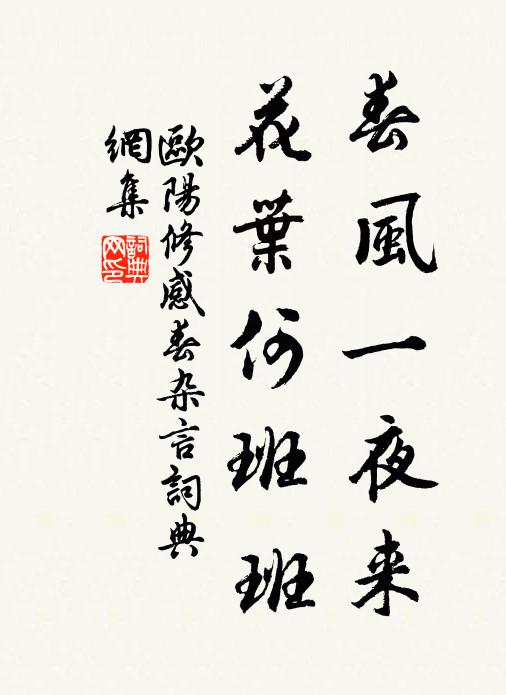 春風一夜来
花葉何班班
歐陽修感春杂言詞典
網集
詞典
网印